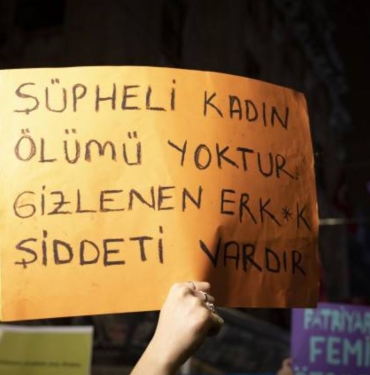 ŞÜPHELİ KADIN
ÖLÜMÜ YOKTUR
GİZLENEN ERK*K
ŞİDDETİ VARDIR
FEMİ